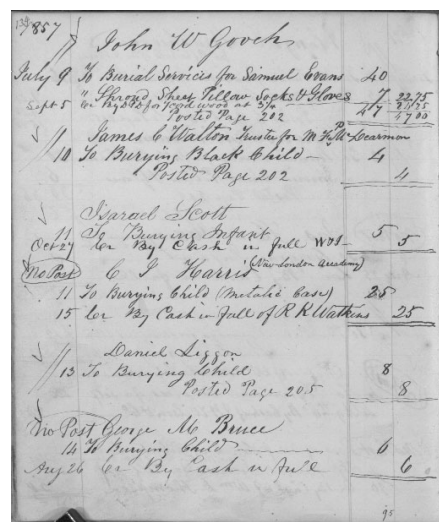 1857
John W Gooch
July 9 To Burial Services for Samuel Evans 40
" Shroud Sheet Pillow Socks & Gloves 7 22.75
Sept 5 Cr By for wood at 47 47 00
Posted Page 202
James C Walton Trustee for
10 To Burying Black Child 4
Posted Page 202 4
Israel Scott
11 To Burying Infant 5
Oct 27 Cr By Cash in full 5
No Post C J Harris (New London Academy)
11 To Burying Child (Metalic Case) 25
15 Cr By Cash in full of R K Watkins 25
Daniel Liggon
13 To Burying Child 8
Posted Page 205 8
No Post George M Bruce
14 To Burying Child 6
Aug 26 Cr By Cash in full 6
95